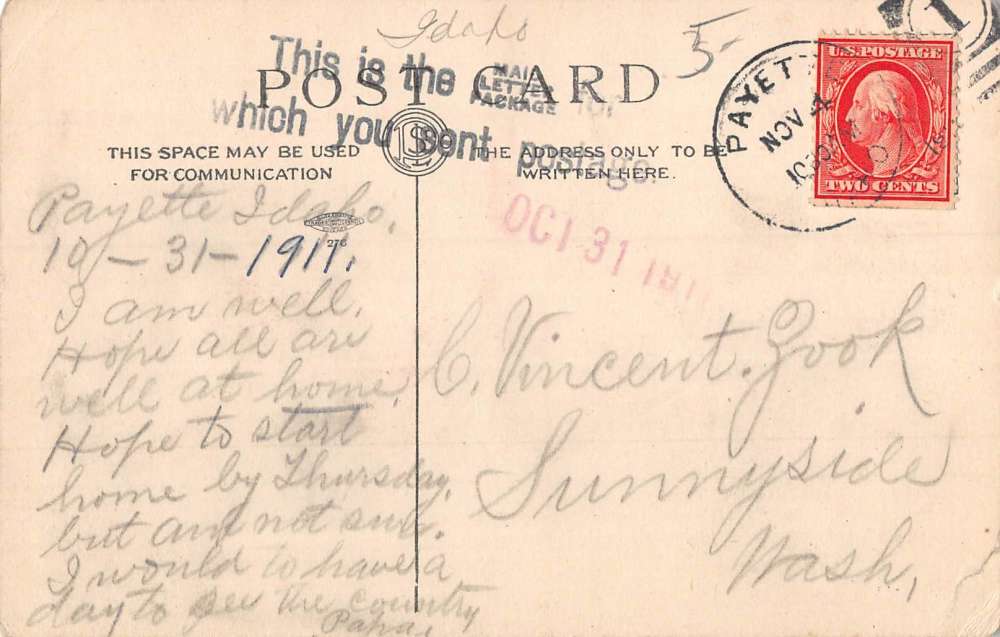 Idaho
5-
This is the MAIL LETTER PACKAGE for
which you sent postage.
POST CARD
THIS SPACE MAY BE USED
FOR COMMUNICATION
THE ADDRESS ONLY TO BE
WRITTEN HERE.
PAYET
NOV 4
1
U.S. POSTAGE
TWO CENTS
276
OCT 31 1911
Payette Idaho,
10 - 31 - 1911.
I am well.
Hope all are
well at home.
Hope to start
home by Thursday,
but am not sure.
I would to have a
day to see the country
Papa.
C. Vincent. Zook
Sunnyside
Wash,